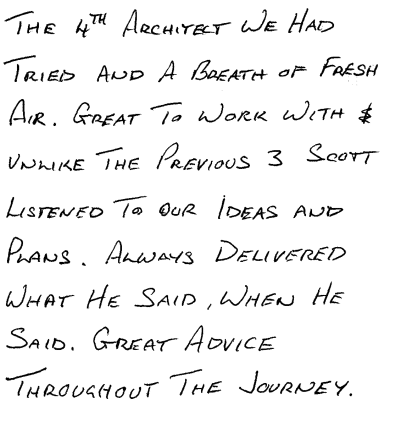 THE 4TH ARCHITECT WE HAD
TRIED AND A BREATH OF FRESH
AIR. GREAT TO WORK WITH &
UNLIKE THE PREVIOUS 3 SCOTT
LISTENED TO OUR IDEAS AND
PLANS. ALWAYS DELIVERED
WHAT HE SAID, WHEN HE
SAID. GREAT ADVICE
THROUGHOUT THE JOURNEY.